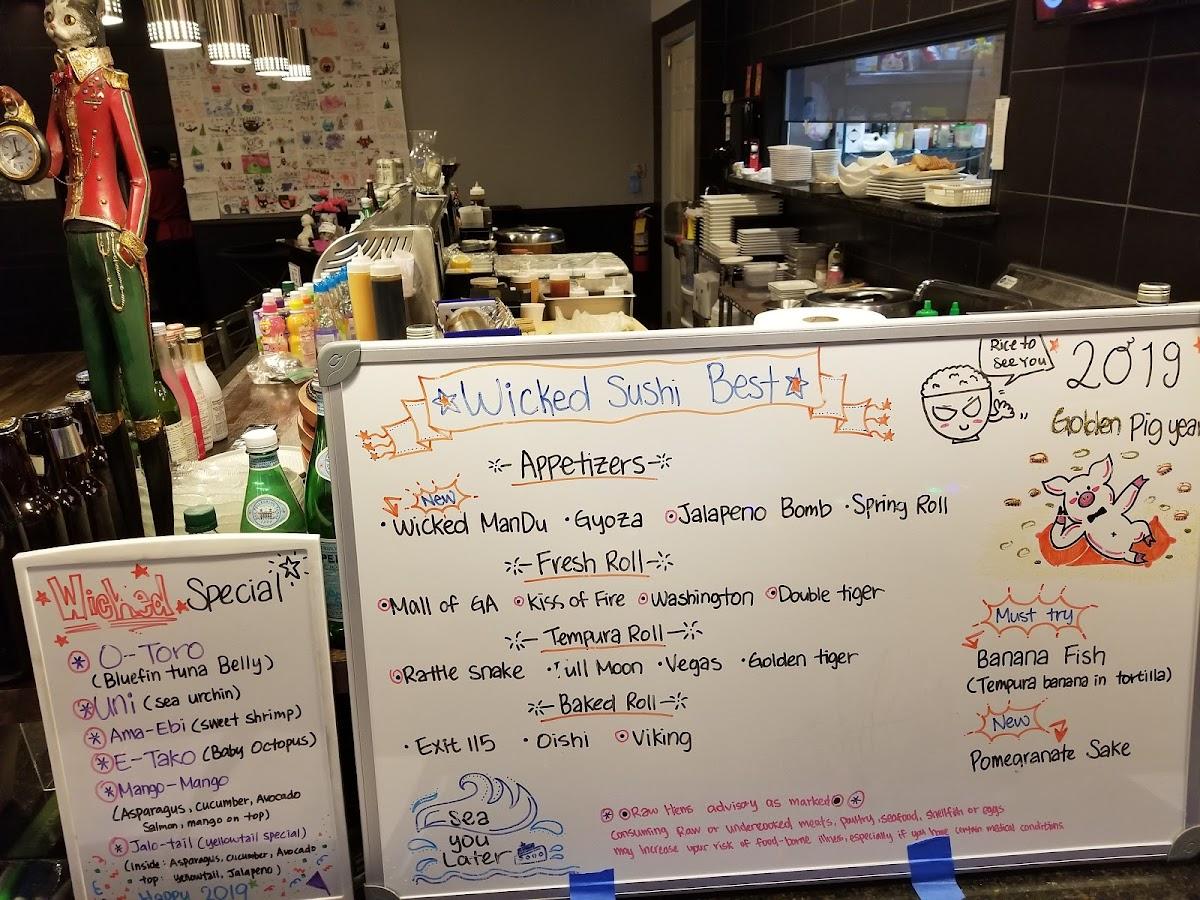 Wicked Special
O-Toro
(Bluefin tuna Belly)
Uni (sea urchin)
Ama-Ebi (sweet shrimp)
E-Tako (Baby Octopus)
Mango-Mango
(Asparagus, cucumber, Avocado
Salmon, mango on top)
Jalo-tail (yellowtail special)
(Inside: Asparagus, cucumber, Avocado
top: yellowtail, Jalapeno)
Happy 2019
Wicked Sushi Best
Appetizers
New
Wicked ManDu · Gyoza Jalapeno Bomb · Spring Roll
Fresh Roll
Mall of GA Kiss of Fire Washington Double tiger
Tempura Roll
Rattle snake · Full Moon · Vegas · Golden tiger
Baked Roll
· Exit 115 · Oishi Viking
Sea
you
Later
Rice to
See You
2019
Golden Pig year
Must try
Banana Fish
(Tempura banana in tortilla)
New
Pomegranate Sake
Raw Items advisory as marked
Consuming Raw or undercooked meats, poultry, seafood, shellfish or eggs
may increase your risk of food-borne illness, especially if you have certain medical conditions